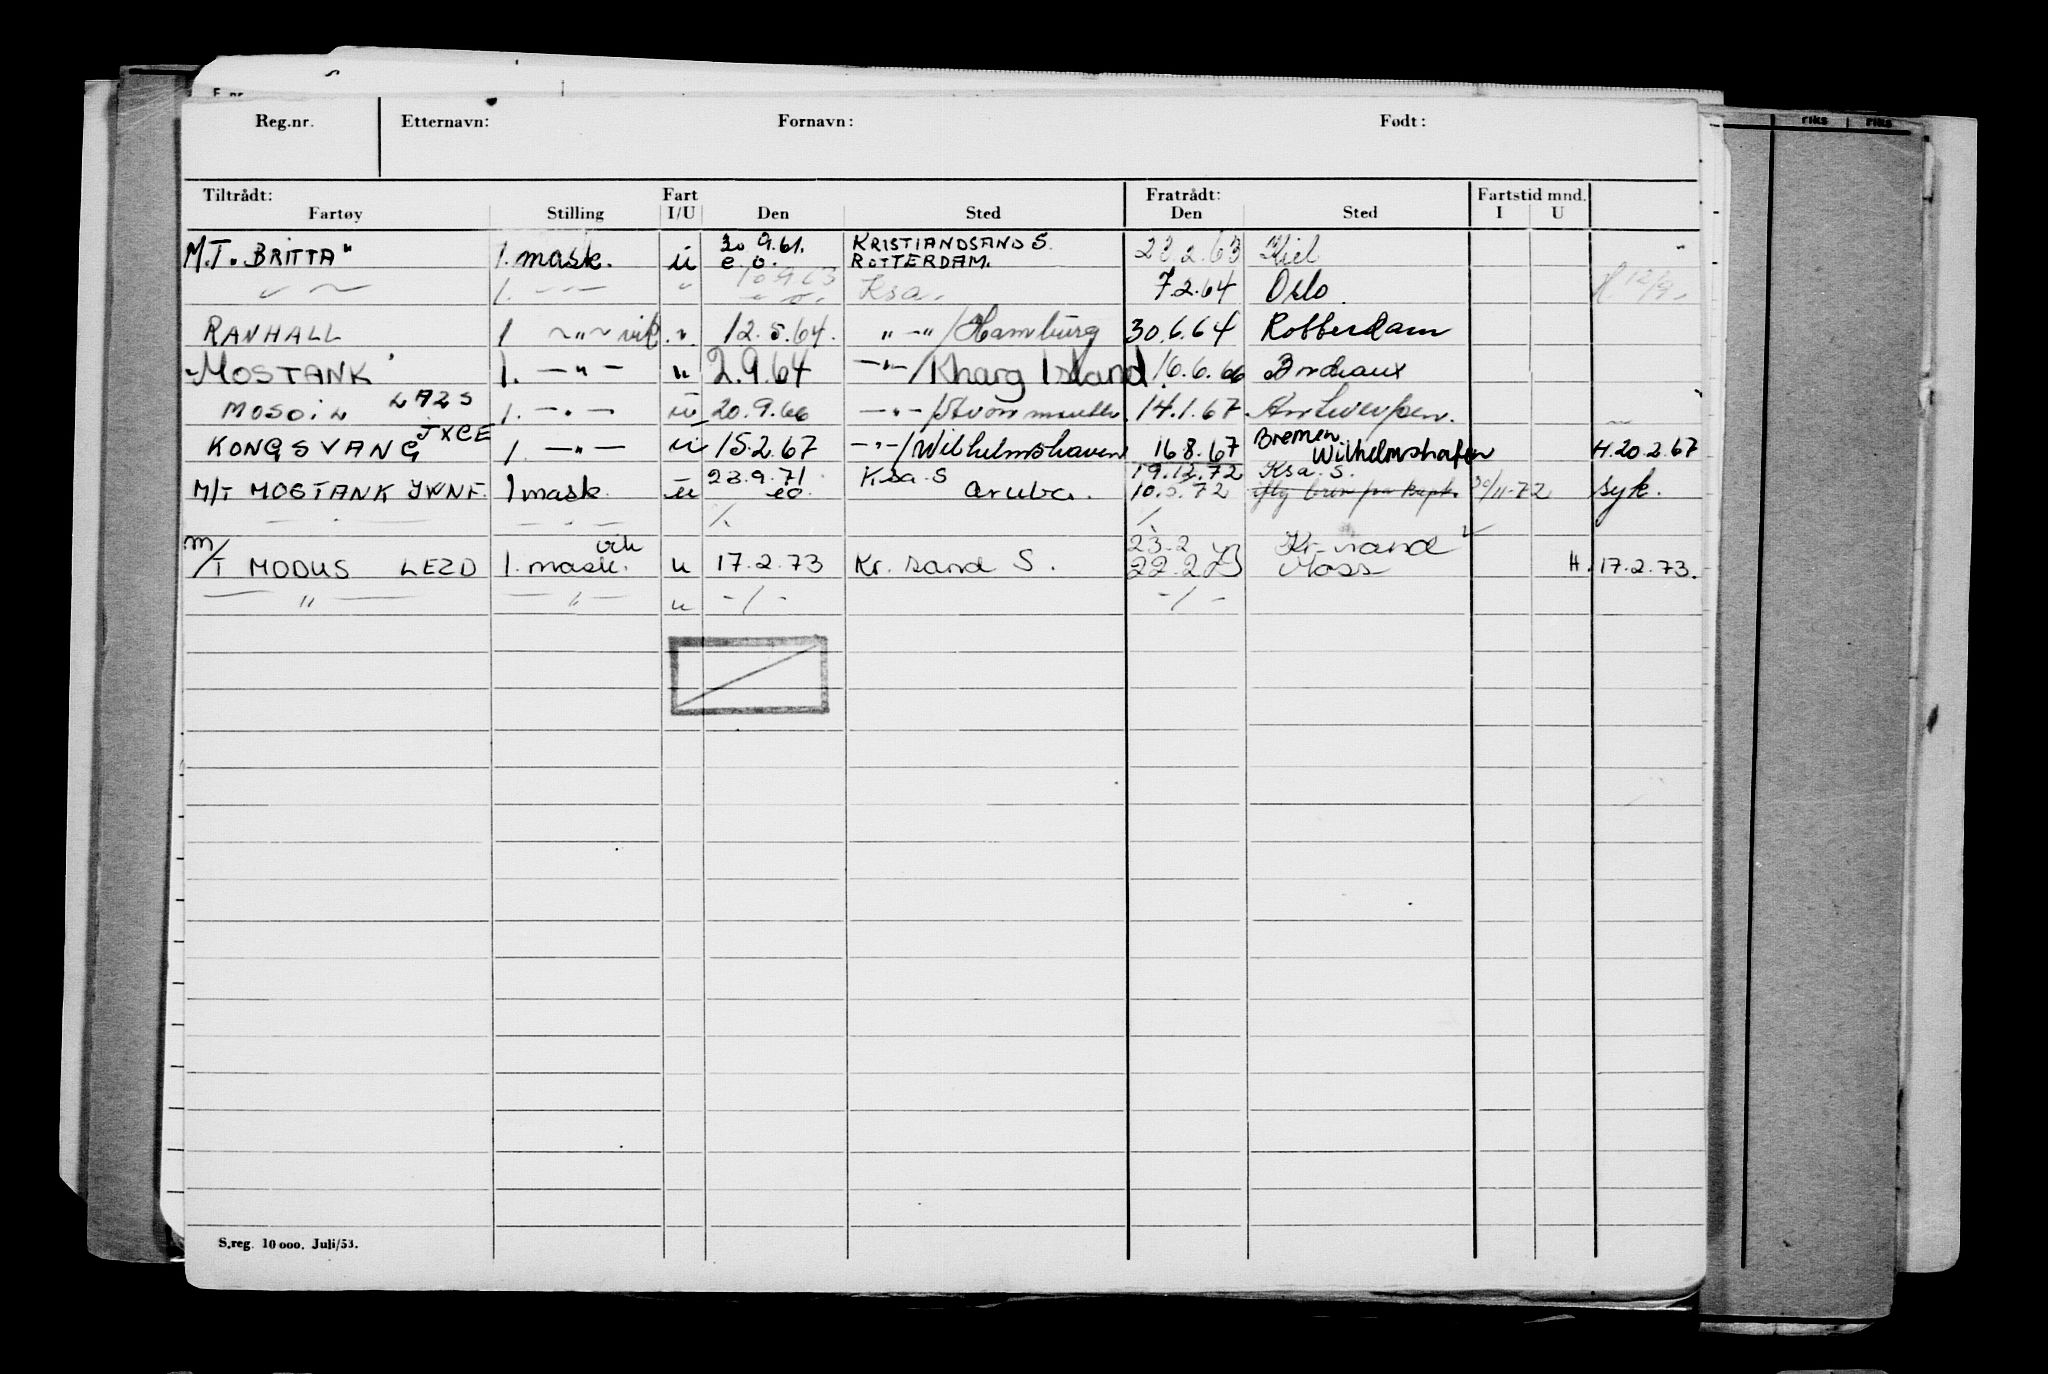 Reg.nr. Etternavn: Fornavn: Født:
Tiltrådt: Fart Fratrådt: Fartstid mnd.
Fartøy Stilling I/U Den Sted Den Sted I U
M.T. "BRITTA" 1. mask. u 30.9.61. e.o. KRISTIANDSAND S. ROTTERDAM. 23.2.63 Kiel
— " — 1. — " — " 10.9.63 Ksa. 7.2.64 Oslo. H 12/9.
RANHALL 1 — " — vik " 12.5.64. " — " / Hamburg 30.6.64 Rotterdam
MOSTANK 1. — " — " 2.9.64 — " — / Kharg Island 16.6.66 Bordeaux
MOSOIL LAZS 1. — " — u 20.9.66 — " — / Avonmouth. 14.1.67. Antwerpen.
KONGSVANG JXCE 1. — " — u 15.2.67 — " — / Wilhelmshaven 16 8.67 Bremen. Wilhelmshafen H. 20.2.67
M/T MOSTANK JWNF. 1 mask. u 23.9.71 eo Ksa. S Aruba. 19.12.72 10.5.72 Ksa. S. 30/11-72 syk.
— " — — " — /. /
M/T MODUS LEZD 1. mask. vik u 17.2.73 Kr. sand S. 23.2 22.2.73 Kr. sand Moss H. 17.2.73.
— " — — " — u -/- -/-
S.reg. 10 000. Juli/53.
riks riks